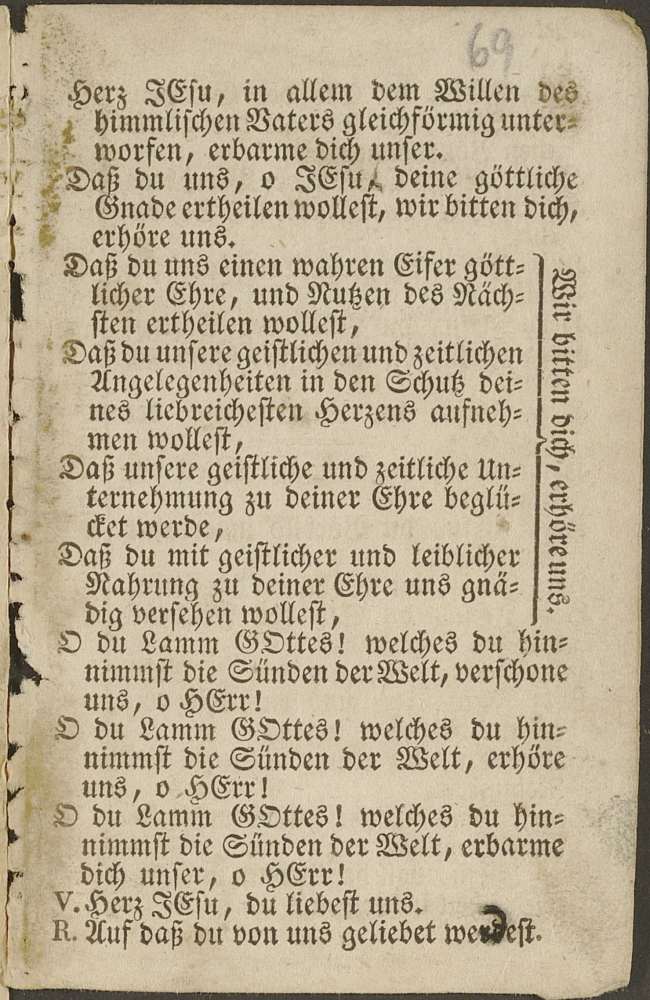 69
Herz JEsu, in allem dem Willen des
himmlischen Vaters gleichförmig unter-
worfen, erbarme dich unser.
Daß du uns, o JEsu, deine göttliche
Gnade ertheilen wollest, wir bitten dich,
erhöre uns.
Daß du uns einen wahren Eifer gött-
licher Ehre, und Nutzen des Näch-
sten ertheilen wollest,
Daß du unsere geistlichen und zeitlichen
Angelegenheiten in den Schutz dei-
nes liebreichesten Herzens aufneh-
men wollest,
Daß unsere geistliche und zeitliche Un-
ternehmung zu deiner Ehre beglü-
cket werde,
Daß du mit geistlicher und leiblicher
Nahrung zu deiner Ehre uns gnä-
dig versehen wollest,
Wir bitten dich, erhöre uns.
O du Lamm GOttes! welches du hin-
nimmst die Sünden der Welt, verschone
uns, o HErr!
O du Lamm GOttes! welches du hin-
nimmst die Sünden der Welt, erhöre
uns, o HErr!
O du Lamm GOttes! welches du hin-
nimmst die Sünden der Welt, erbarme
dich unser, o HErr!
V. Herz JEsu, du liebest uns.
R. Auf daß du von uns geliebet werdest.